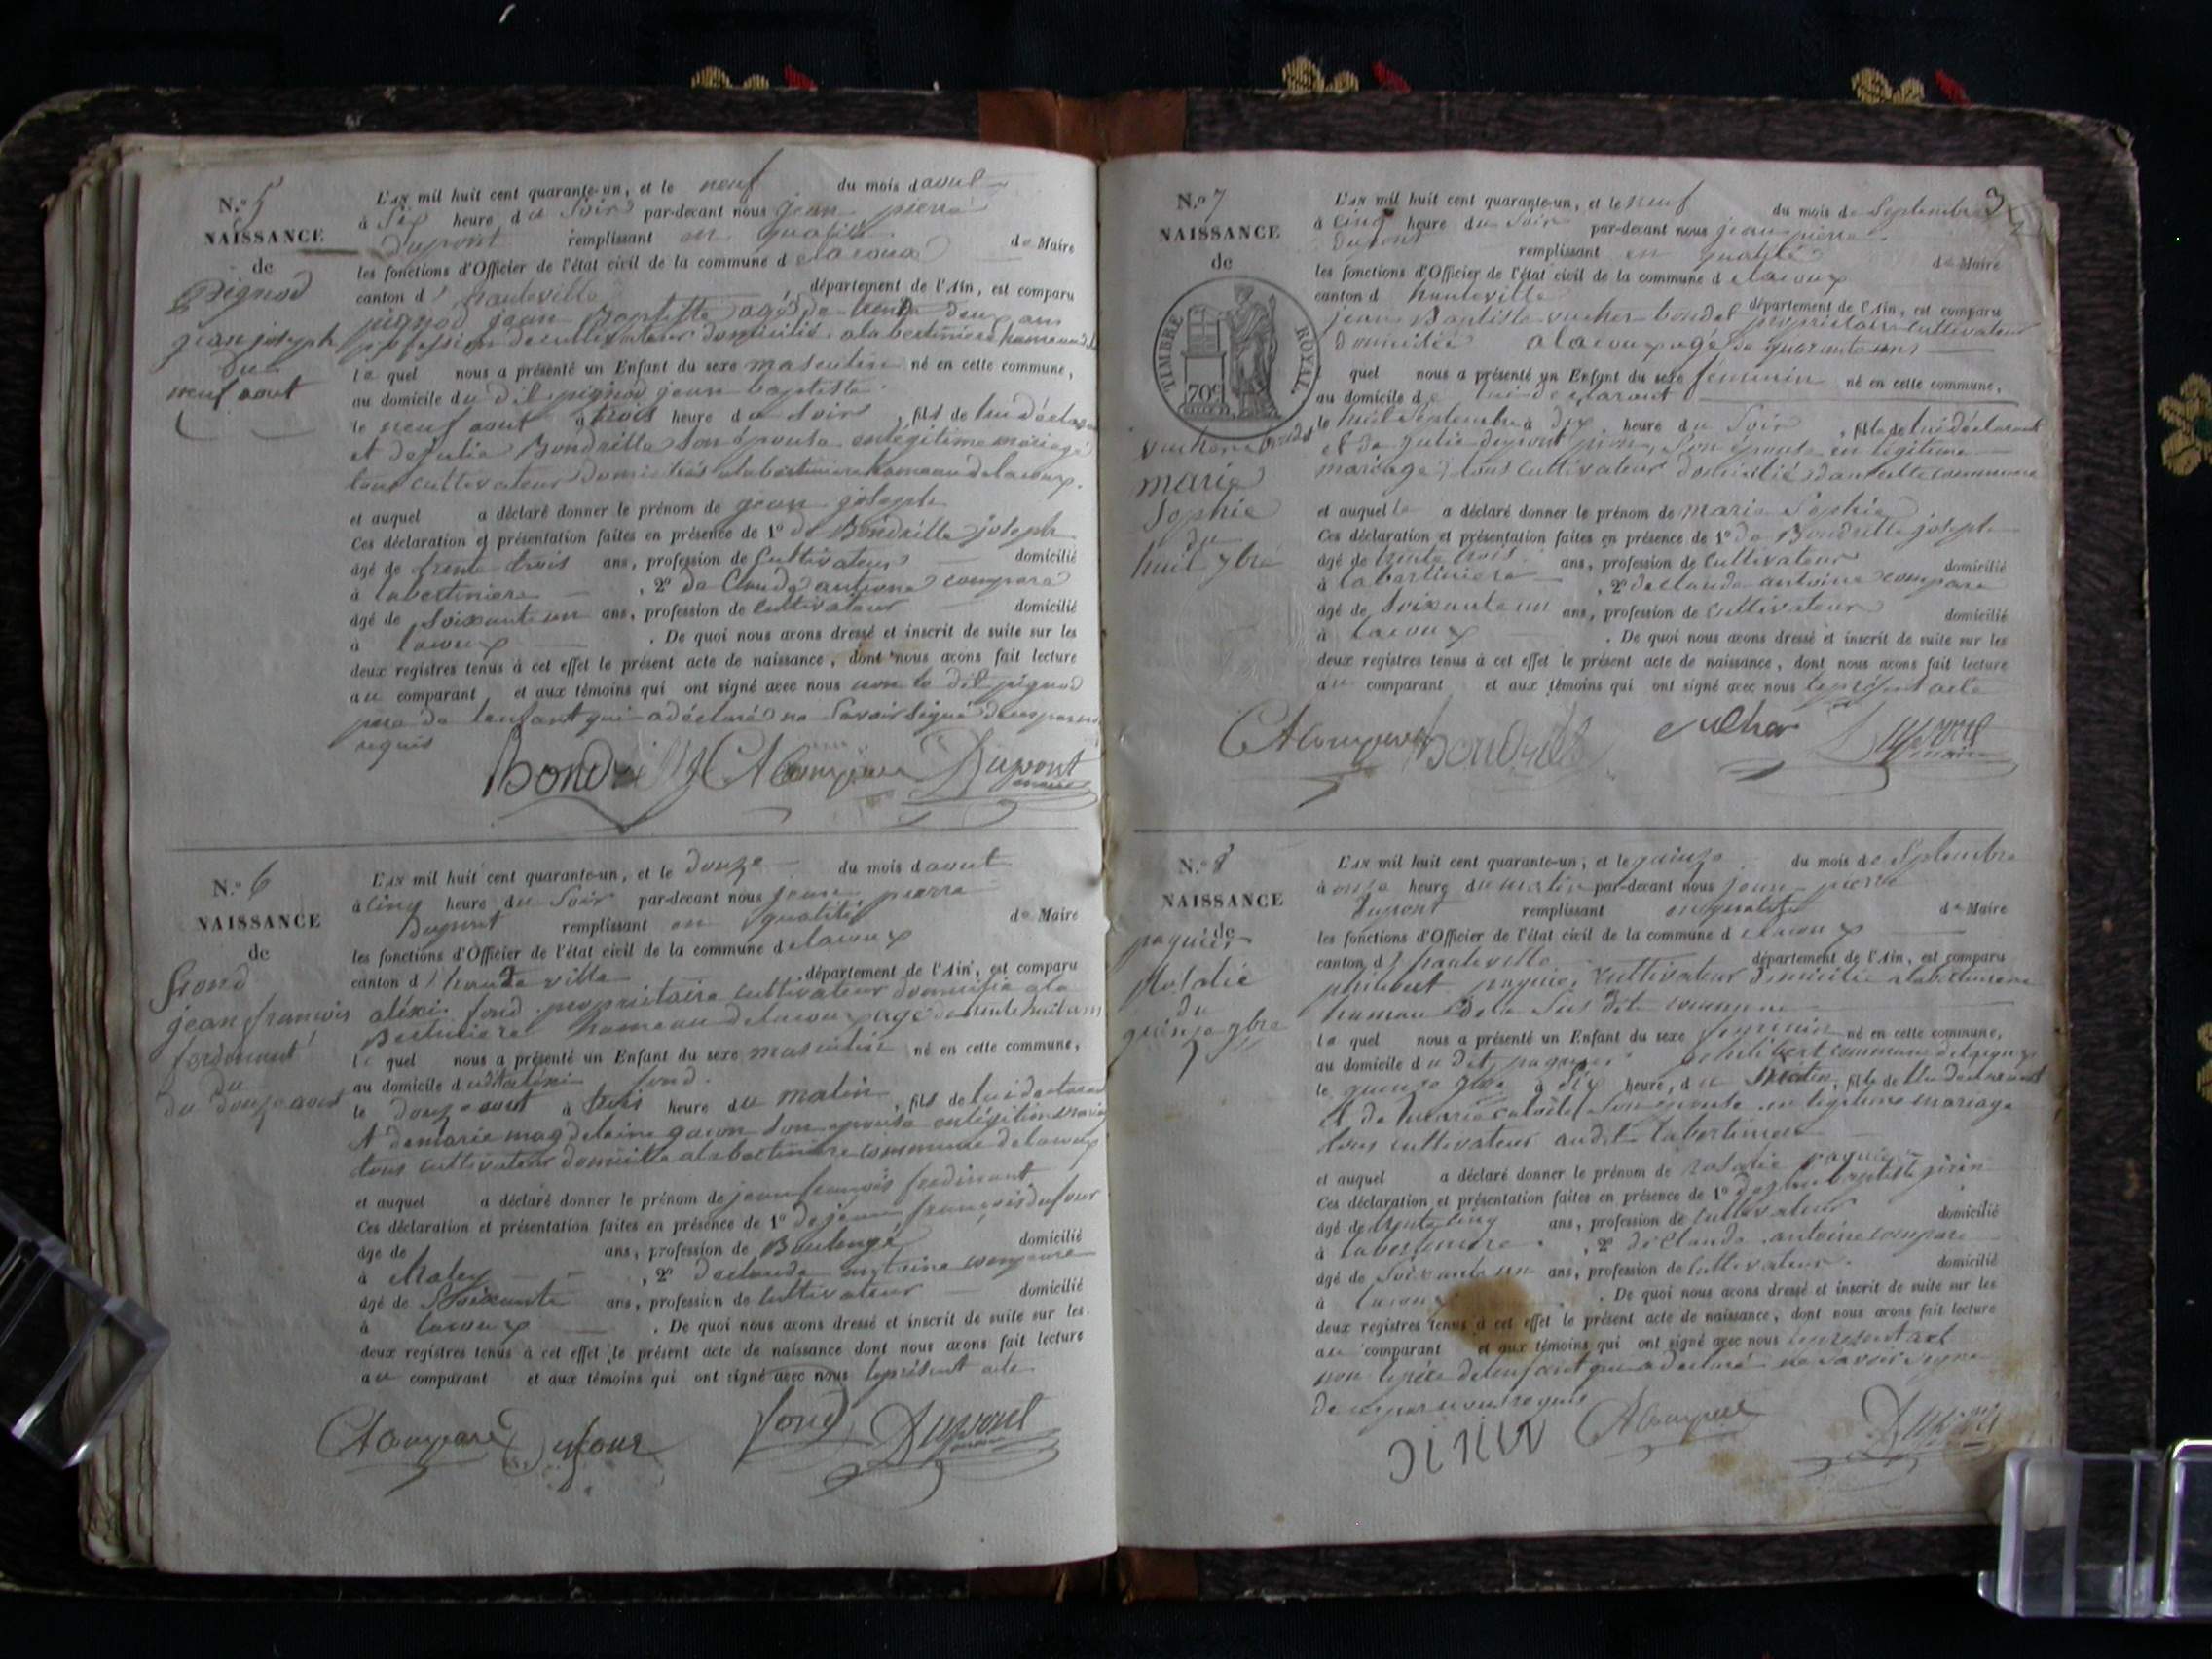 N.º 5
NAISSANCE
de
Pignod
jean joseph
du
neuf aout
L'AN mil huit cent quarante-un, et le neuf du mois d aout
à six heure du Soir par-devant nous jean pierre
Dupont remplissant en qualité de Maire
les fonctions d'Officier de l'état civil de la commune d
canton d hauteville, département de l'Ain, est comparu
pignod jean Baptiste agé de trente deux ans
profession de cultivateur domicilié a la bertiniere hameau
le quel nous a présenté un Enfant du sexe masculin né en cette commune,
au domicile du dit pignod jean baptiste
le neuf aout à trois heure du Soir, fils de lui déclarant
et de julie Bondrille son épouse en légitime mariage
tous cultivateur domiciliés a la bertiniere hameau de lacoux.
et auquel a déclaré donner le prénom de jean joseph
Ces déclaration et présentation faites en présence de 1º de Bondrille joseph
âgé de trente trois ans, profession de Cultivateur domicilié
à labertiniere, 2º de Claude antoine compare
âgé de soixante un ans, profession de cultivateur domicilié
à lacoux. De quoi nous avons dressé et inscrit de suite sur les
deux registres tenus à cet effet le présent acte de naissance, dont nous avons fait lecture
au comparant et aux témoins qui ont signé avec nous non le dit pignod
pere de lenfant qui a déclaré ne Savoir signé de ce par nous
requis
CA Compare Dupont
maire
N.º 6
NAISSANCE
de
fond
jean francois
ferdinant
du
du douze aout
L'AN mil huit cent quarante-un, et le douze du mois d aout
à cinq heure du Soir par-devant nous jean pierre
Dupont remplissant en qualité de Maire
les fonctions d'Officier de l'état civil de la commune de lacoux
canton d haute ville, département de l'Ain, est comparu
aléxi fond propriétaire cultivateur domicilié a la
Bertiniere hameau de lacoux agé de trente huit ans
le quel nous a présenté un Enfant du sexe masculin né en cette commune,
au domicile du dit aléxi fond.
le douze aout à trois heure du matin, fils de lui déclarant
et de marie magdelaine gacon son epouse en légitime mariage
tous cultivateur domicilié a la bertiniere commune de lacoux
et auquel a déclaré donner le prénom de jean françois ferdinant.
Ces déclaration et présentation faites en présence de 1º de jean françois dufour
âgé de ans, profession de Boulangé domicilié
à, 2º de claude antoine compare
âgé de Soixante ans, profession de cultivateur domicilié
à lacoux. De quoi nous avons dressé et inscrit de suite sur les
deux registres tenus à cet effet le présent acte de naissance dont nous avons fait lecture
au comparant et aux témoins qui ont signé avec nous leprésent acte
CA Compare Dufour fond Dupont
maire
3
N.º 7
NAISSANCE
de
TIMBRE ROYAL
70c
vucher bondet
marie
Sophie
du
huit 7bre
L'AN mil huit cent quarante-un, et le neuf du mois de Septembre
à cinq heure du Soir par-devant nous jean pierre
dupont remplissant en qualité de Maire
les fonctions d'Officier de l'état civil de la commune d elacoux
canton d hauteville département de l'Ain, est comparu
jean Baptiste vucher bondet propriétaire cultivateur
domicilié a lacoux agé de quarante ans
quel nous a présenté un Enfant du sexe feminin né en cette commune,
au domicile de lui declarant
le huit Septembre à dix heure du Soir, fille de lui déclarant
et de julie dupont son épouse en légitime
mariage tous cultivateur domicilié dans cette commune
et auquel le a déclaré donner le prénom de marie Sophie
Ces déclaration et présentation faites en présence de 1º de Bondrille joseph
âgé de trente trois ans, profession de Cultivateur domicilié
à labertiniere, 2º de claude antoine compare
âgé de soixante un ans, profession de Cultivateur domicilié
à lacoux. De quoi nous avons dressé et inscrit de suite sur les
deux registres tenus à cet effet le présent acte de naissance, dont nous avons fait lecture
au comparant et aux témoins qui ont signé avec nous leprésent acte
CA Compare Dupont
maire
N.º 8
NAISSANCE
de
paquier
Rosalie
du
quinze 7bre
L'AN mil huit cent quarante-un, et le quinze du mois de Septembre
à onze heure du matin par-devant nous jean pierre
Dupont remplissant en qualité de Maire
les fonctions d'Officier de l'état civil de la commune d elacoux
canton d hauteville département de l'Ain, est comparu
philibert paquier cultivateur domicilié a la bertiniere
hameau de la Sus dite commune
le quel nous a présenté un Enfant du sexe feminin né en cette commune,
au domicile du dit paquier philibert commune
le quinze 7bre à dix heure, du matin, fille de lui déclarant
et de marie son epouse en légitime mariage
tous cultivateur au dit labertiniere
et auquel a déclaré donner le prénom de rosalie paquier
Ces déclaration et présentation faites en présence de 1º de jean baptiste
âgé de trente cinq ans, profession de cultivateur domicilié
à labertiniere, 2º de Claude antoine compare
âgé de soixante un ans, profession de cultivateur. domicilié
à lacoux. De quoi nous avons dressé et inscrit de suite sur les
deux registres tenus à cet effet le présent acte de naissance, dont nous avons fait lecture
au comparant et aux témoins qui ont signé avec nous le présent act
non le père de lenfant qui a déclaré ne Savoir signé
de ce par nous requis
CA Compare Dupont